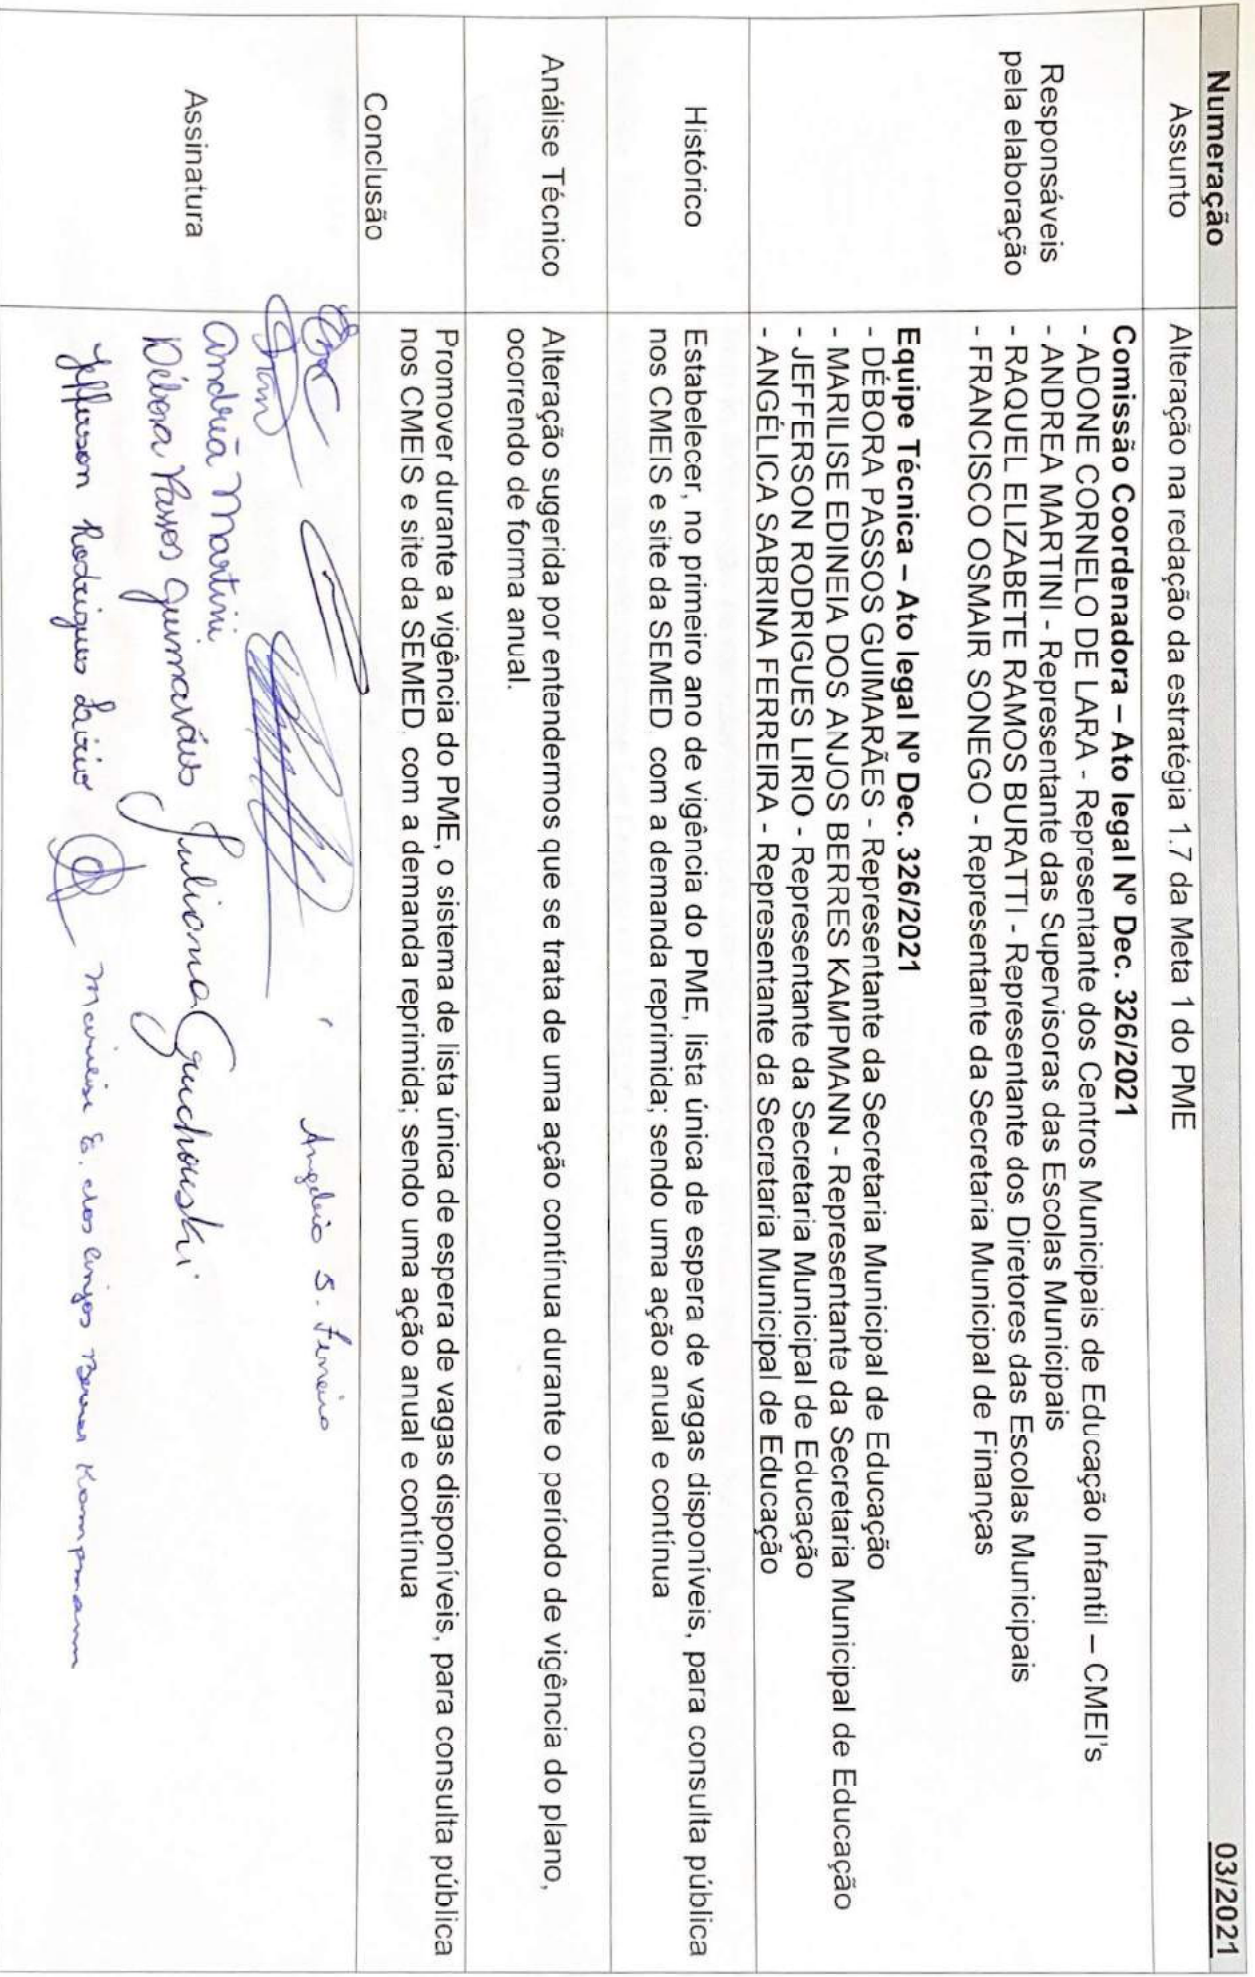 Numeração 03/2021
Assunto Alteração na redação da estratégia 1.7 da Meta 1 do PME
Responsáveis
pela elaboração
Comissão Coordenadora – Ato legal Nº Dec. 326/2021
- ADONE CORNELO DE LARA - Representante dos Centros Municipais de Educação Infantil – CMEI's
- ANDREA MARTINI - Representante das Supervisoras das Escolas Municipais
- RAQUEL ELIZABETE RAMOS BURATTI - Representante dos Diretores das Escolas Municipais
- FRANCISCO OSMAIR SONEGO - Representante da Secretaria Municipal de Finanças
Equipe Técnica – Ato legal Nº Dec. 326/2021
- DÉBORA PASSOS GUIMARÃES - Representante da Secretaria Municipal de Educação
- MARILISE EDINEIA DOS ANJOS BERRES KAMPMANN - Representante da Secretaria Municipal de Educação
- JEFFERSON RODRIGUES LIRIO - Representante da Secretaria Municipal de Educação
- ANGÉLICA SABRINA FERREIRA - Representante da Secretaria Municipal de Educação
Histórico
Estabelecer, no primeiro ano de vigência do PME, lista única de espera de vagas disponíveis, para consulta pública
nos CMEIS e site da SEMED, com a demanda reprimida; sendo uma ação anual e contínua
Análise Técnico
Alteração sugerida por entendermos que se trata de uma ação contínua durante o período de vigência do plano,
ocorrendo de forma anual.
Conclusão
Promover durante a vigência do PME, o sistema de lista única de espera de vagas disponíveis, para consulta pública
nos CMEIS e site da SEMED, com a demanda reprimida; sendo uma ação anual e contínua
Assinatura
S. Ferreira
Andréa Martini
Débora Passos Guimarães Juliana
Jefferson Rodrigues Lirio Marilise E. dos Anjos Berres Kampmann